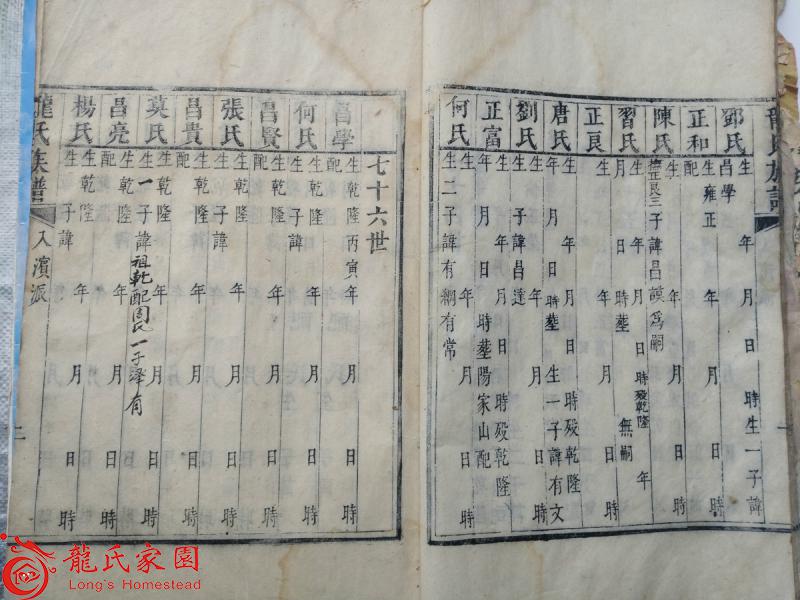 龍氏族譜
鄧氏 生 年 月 日 時生一子諱
昌學
正和 生雍正 年 月 日 時
配
陳氏 生 年 月 日 時
正良三子諱昌謨為嗣
習氏 生 年 月 日 時殁乾隆 年
月 日 時葬 無嗣
正良 生 年 月 日 時殁乾隆
唐氏 年 月 日 時葬 生一子諱有文
劉氏 生 年 月 日 時
子諱昌達
正富 生 年 月 日 時殁乾隆
年 月 日 時葬陽家山配
何氏 生 年 月 日 時
生二子諱有綱有常
七十六世
昌學 生乾隆丙寅年 月 日 時
配
何氏 生乾隆 年 月 日 時
子諱
昌賢 生乾隆 年 月 日 時
配
張氏 生乾隆 年 月 日 時
子諱
昌貴 生乾隆 年 月 日 時
配
莫氏 生乾隆 年 月 日 時
生一子諱祖乾配周氏一子 有
昌亮 生乾隆 年 月 日 時
配
楊氏 生乾隆 年 月 日 時
生 子諱
龍氏族譜 入濱派 二
龍氏家園
Long's Homestead